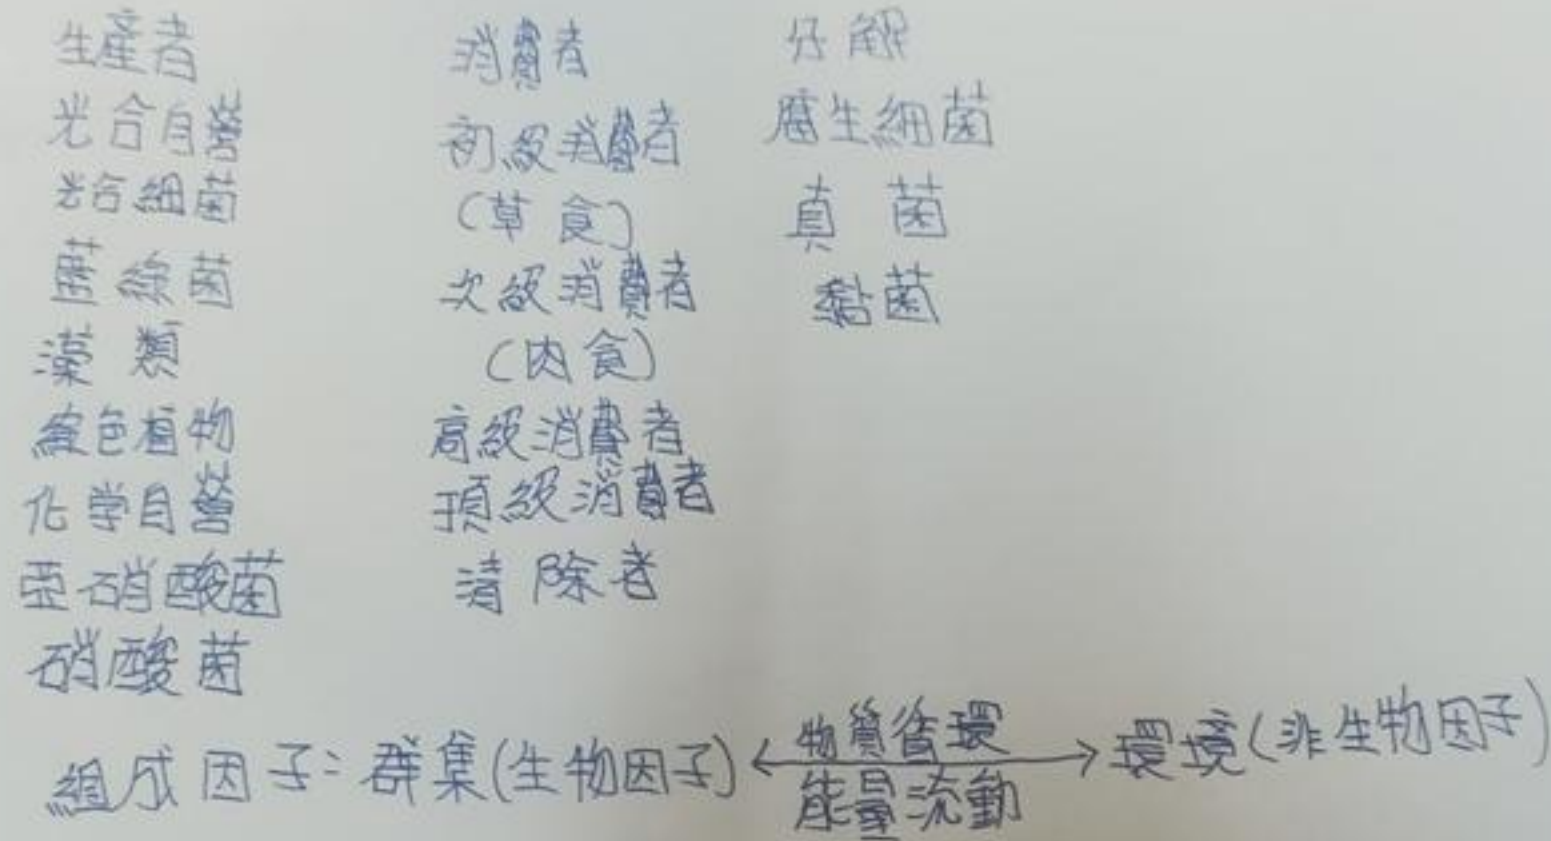 生產者
光合自營
光合細菌
藍綠菌
藻類
綠色植物
化学自營
亞硝酸菌
硝酸菌
消費者
初級消費者
(草食)
次級消費者
(肉食)
高級消費者
頂級消費者
清除者
分解
腐生細菌
真菌
黏菌
組成因子：群集(生物因子) ←→ 環境(非生物因子)
物質循環
能量流動